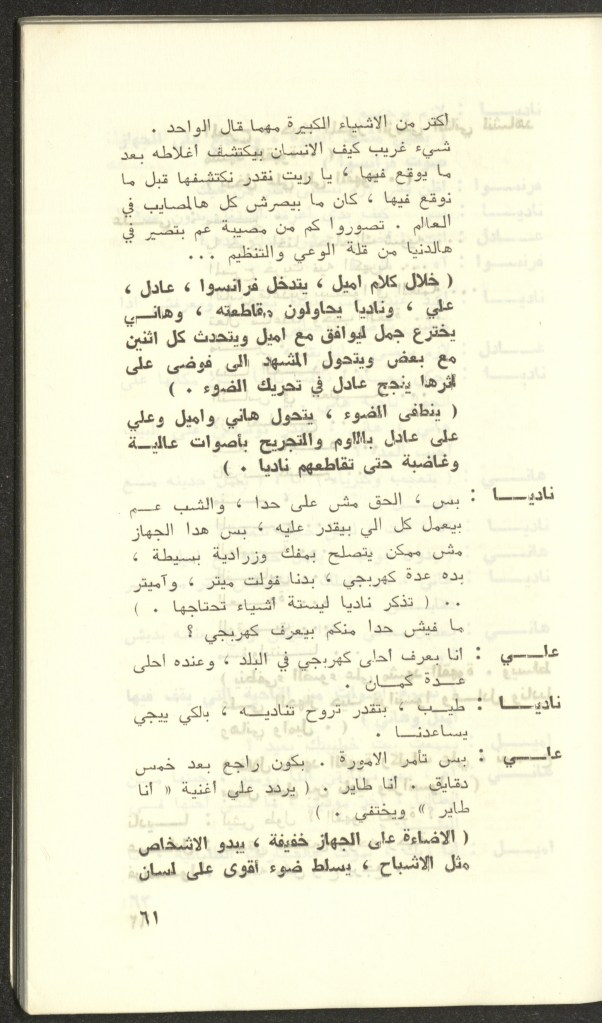 أكتر من الاشياء الكبيرة مهما قال الواحد .
شيء غريب كيف الانسان بيكتشف أغلاطه بعد
ما يوقع فيها ، يا ريت نقدر نكتشفها قبل ما
نوقع فيها ، كان ما بيصرش كل هالمصايب في
العالم . تصوروا كم من مصيبة عم بتصير في
هالدنيا من قلة الوعي والتنظيم ...
( خلال كلام اميل ، يتدخل فرانسوا ، عادل ،
علي ، وناديا يحاولون مقاطعته ، وهانــي
يخترع جمل ليوافق مع اميل ويتحدث كل اثنين
مع بعض ويتحول المشهد الى فوضى على
أثرها ينجح عادل في تحريك الضوء . )
( ينطفى الضوء ، يتحول هاني واميل وعلي
على عادل باللوم والتجريح بأصوات عاليــة
وغاضبة حتى تقاطعهم ناديا . )
ناديـــا : بس ، الحق مش على حدا ، والشب عــم
بيعمل كل الي بيقدر عليه ، بس هدا الجهاز
مش ممكن يتصلح بمفك وزرادية بسيطة ،
بده عدة كهربجي ، بدنا فولت ميتر ، وآميتر
.. ( تذكر ناديا ليستة أشياء تحتاجها . )
ما فيش حدا منكم بيعرف كهربجي ؟
علـــي : أنا بعرف أحلى كهربجي في البلد ، وعنده احلى
عـــدة كمـــان .
ناديـــا : طيــب ، بتقدر تروح تناديــه ، بالكي ييجي
يساعدنــا .
علـــي : بس تأمر الامورة . بكون راجع بعد خمس
دقايق . أنا طاير . ( يردد علي أغنية « أنا
طاير » ويختفي . )
( الاضاءة على الجهاز خفيفة ، يبدو الاشخاص
مثل الاشباح ، يسلط ضوء أقوى على لسان
٦١